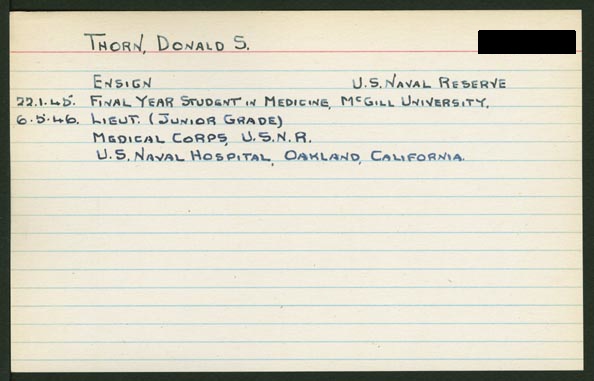 THORN, DONALD S.
ENSIGN U.S. NAVAL RESERVE
22.1.45. FINAL YEAR STUDENT IN MEDICINE, MCGILL UNIVERSITY.
6.5.46. LIEUT. (JUNIOR GRADE)
MEDICAL CORPS, U.S.N.R.
U.S. NAVAL HOSPITAL, OAKLAND, CALIFORNIA.